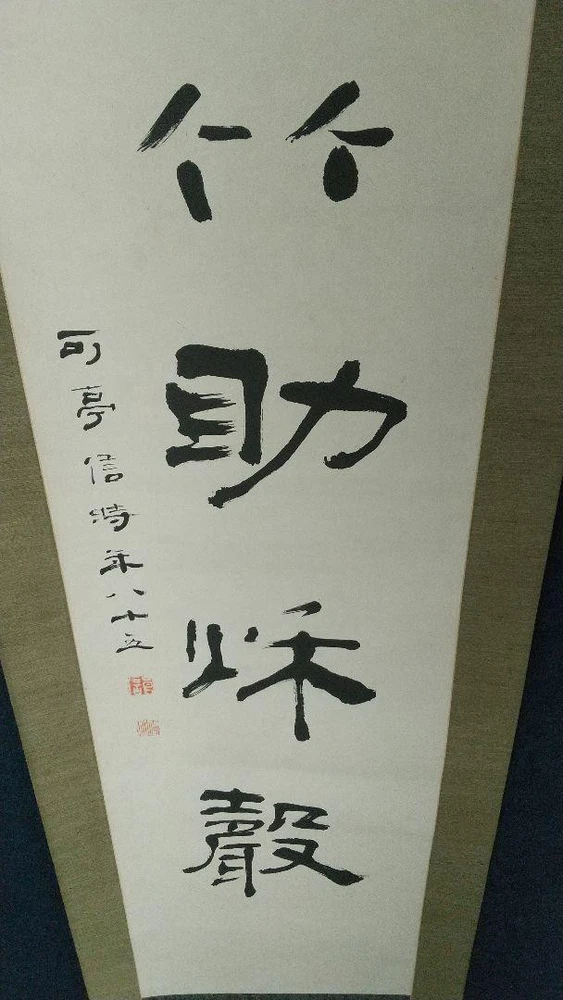 竹助秌聲
可亭信時年八十五